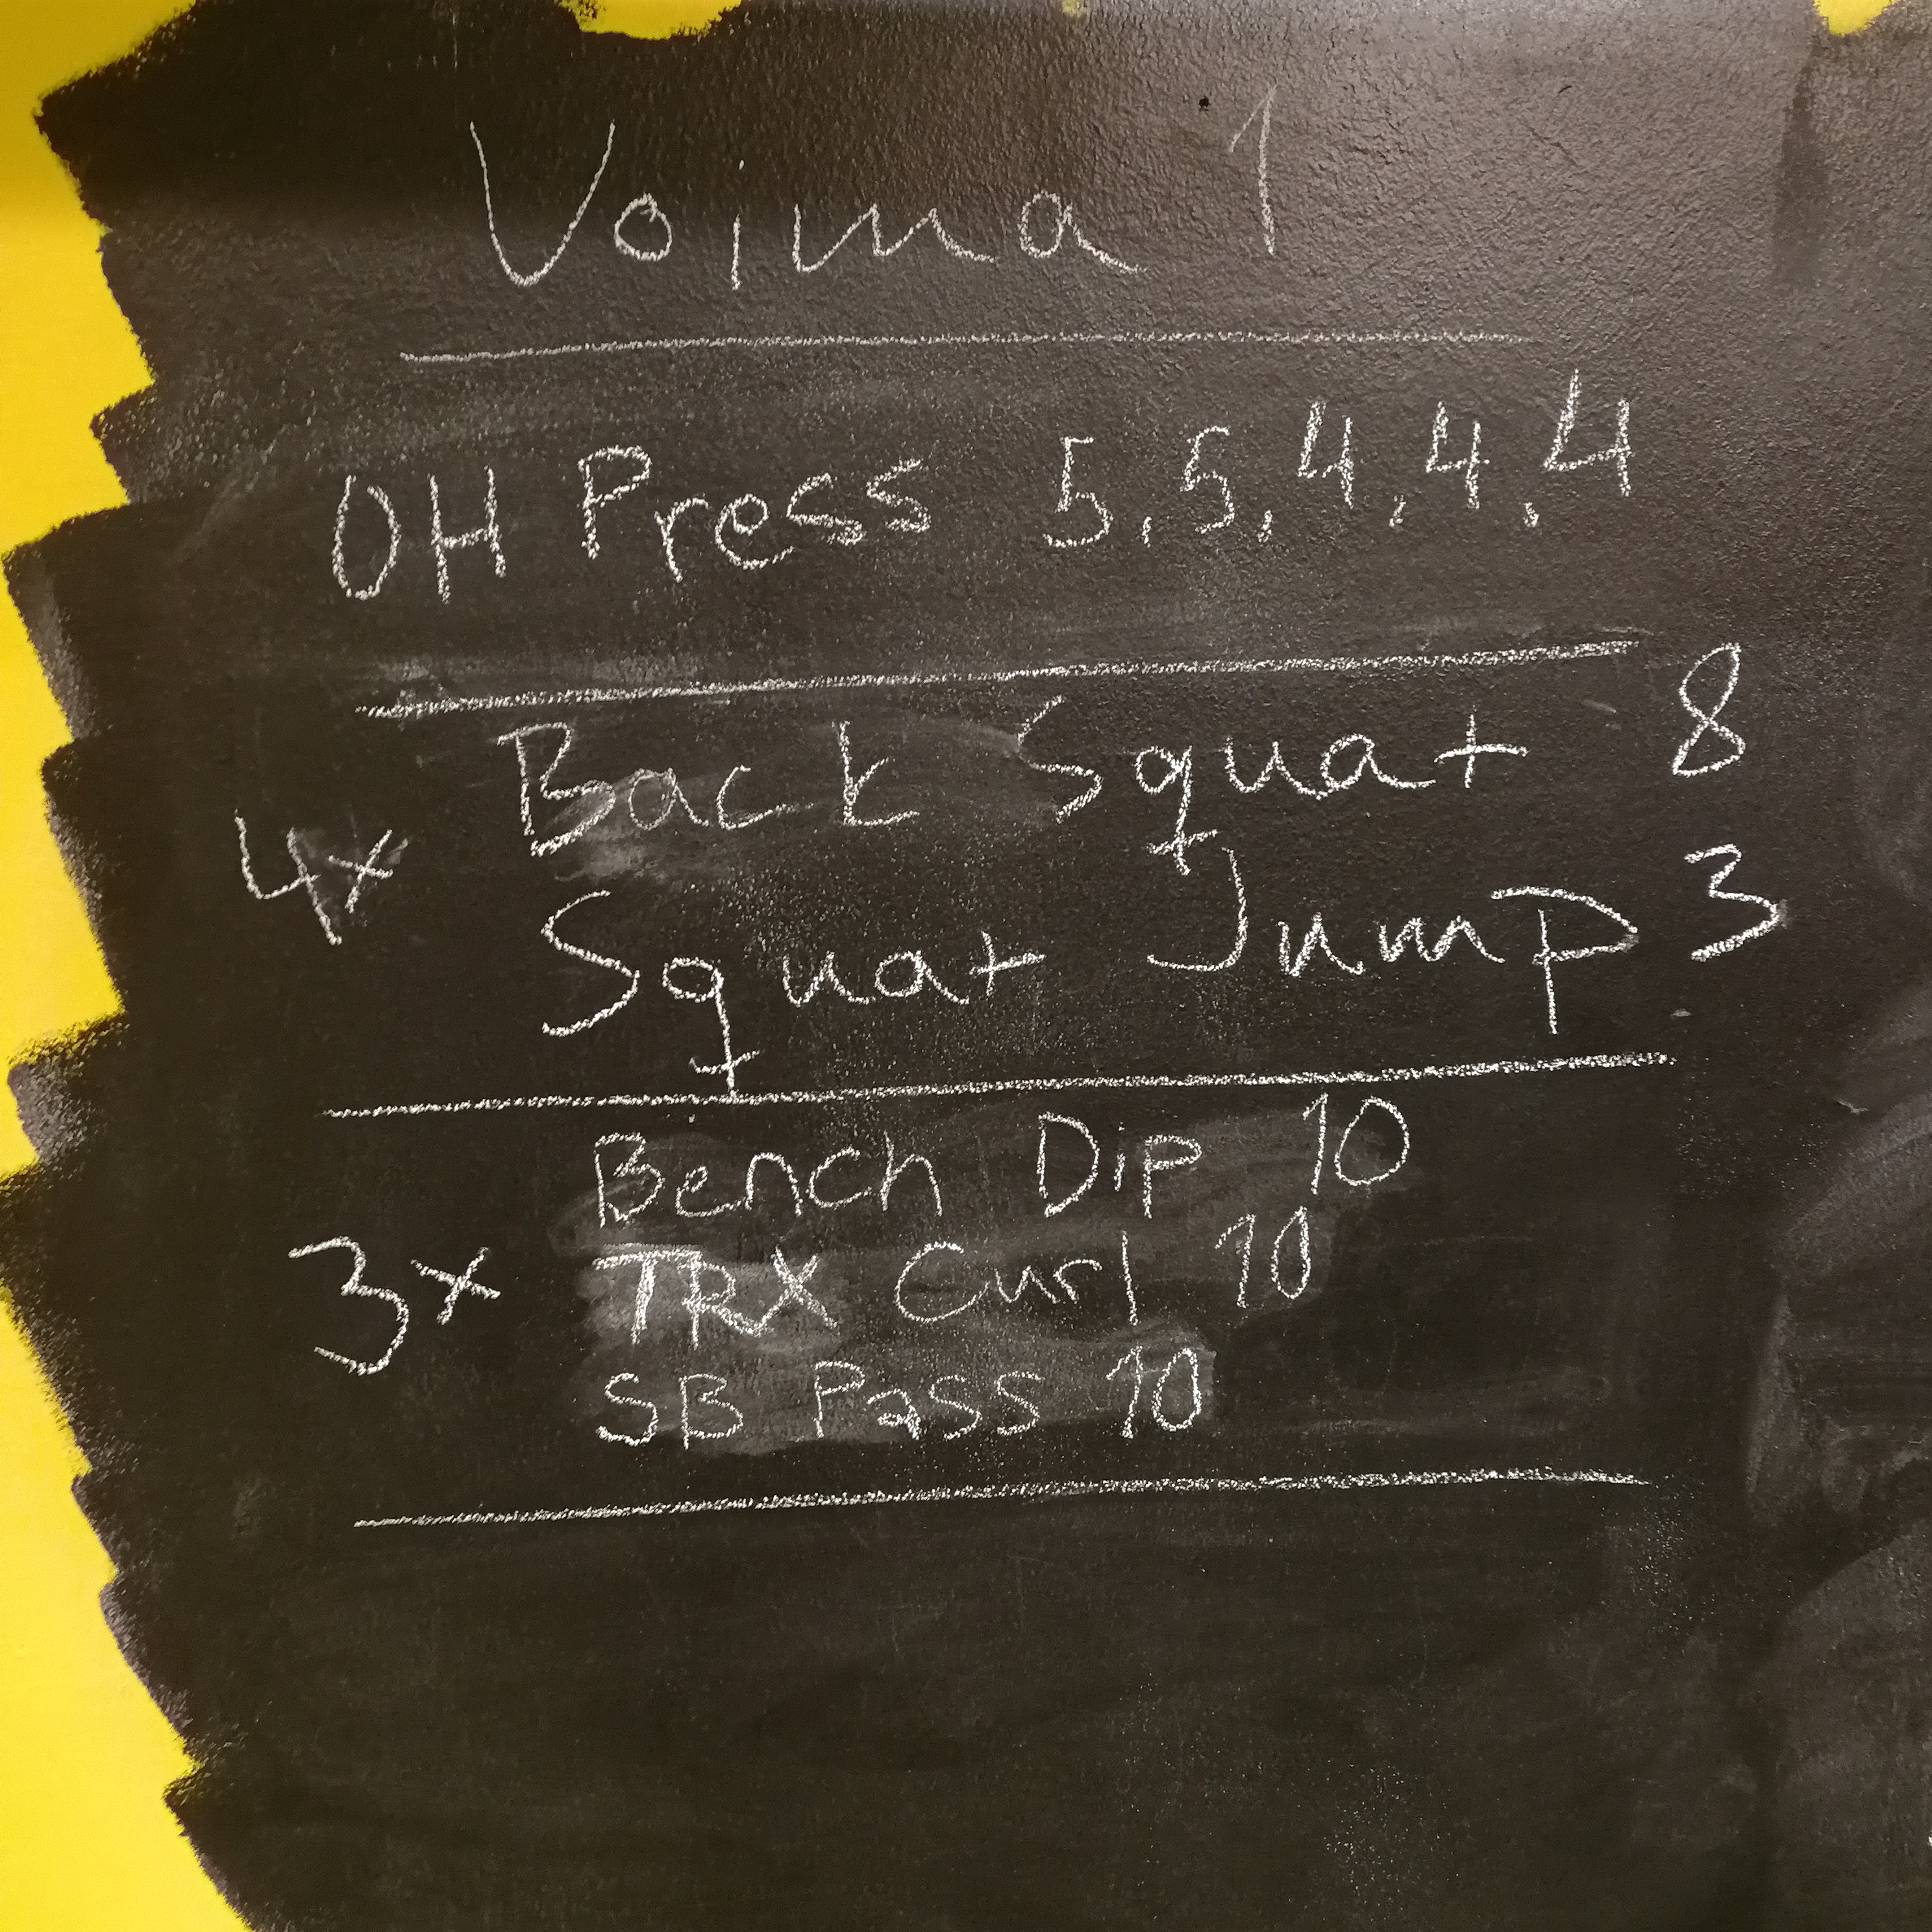 Voima 1
OH Press 5, 5, 4, 4, 4
Back Squat 8
+
4x
Squat Jump 3
+
Bench Dip 10
3x TRX Curl 10
SB Pass 10